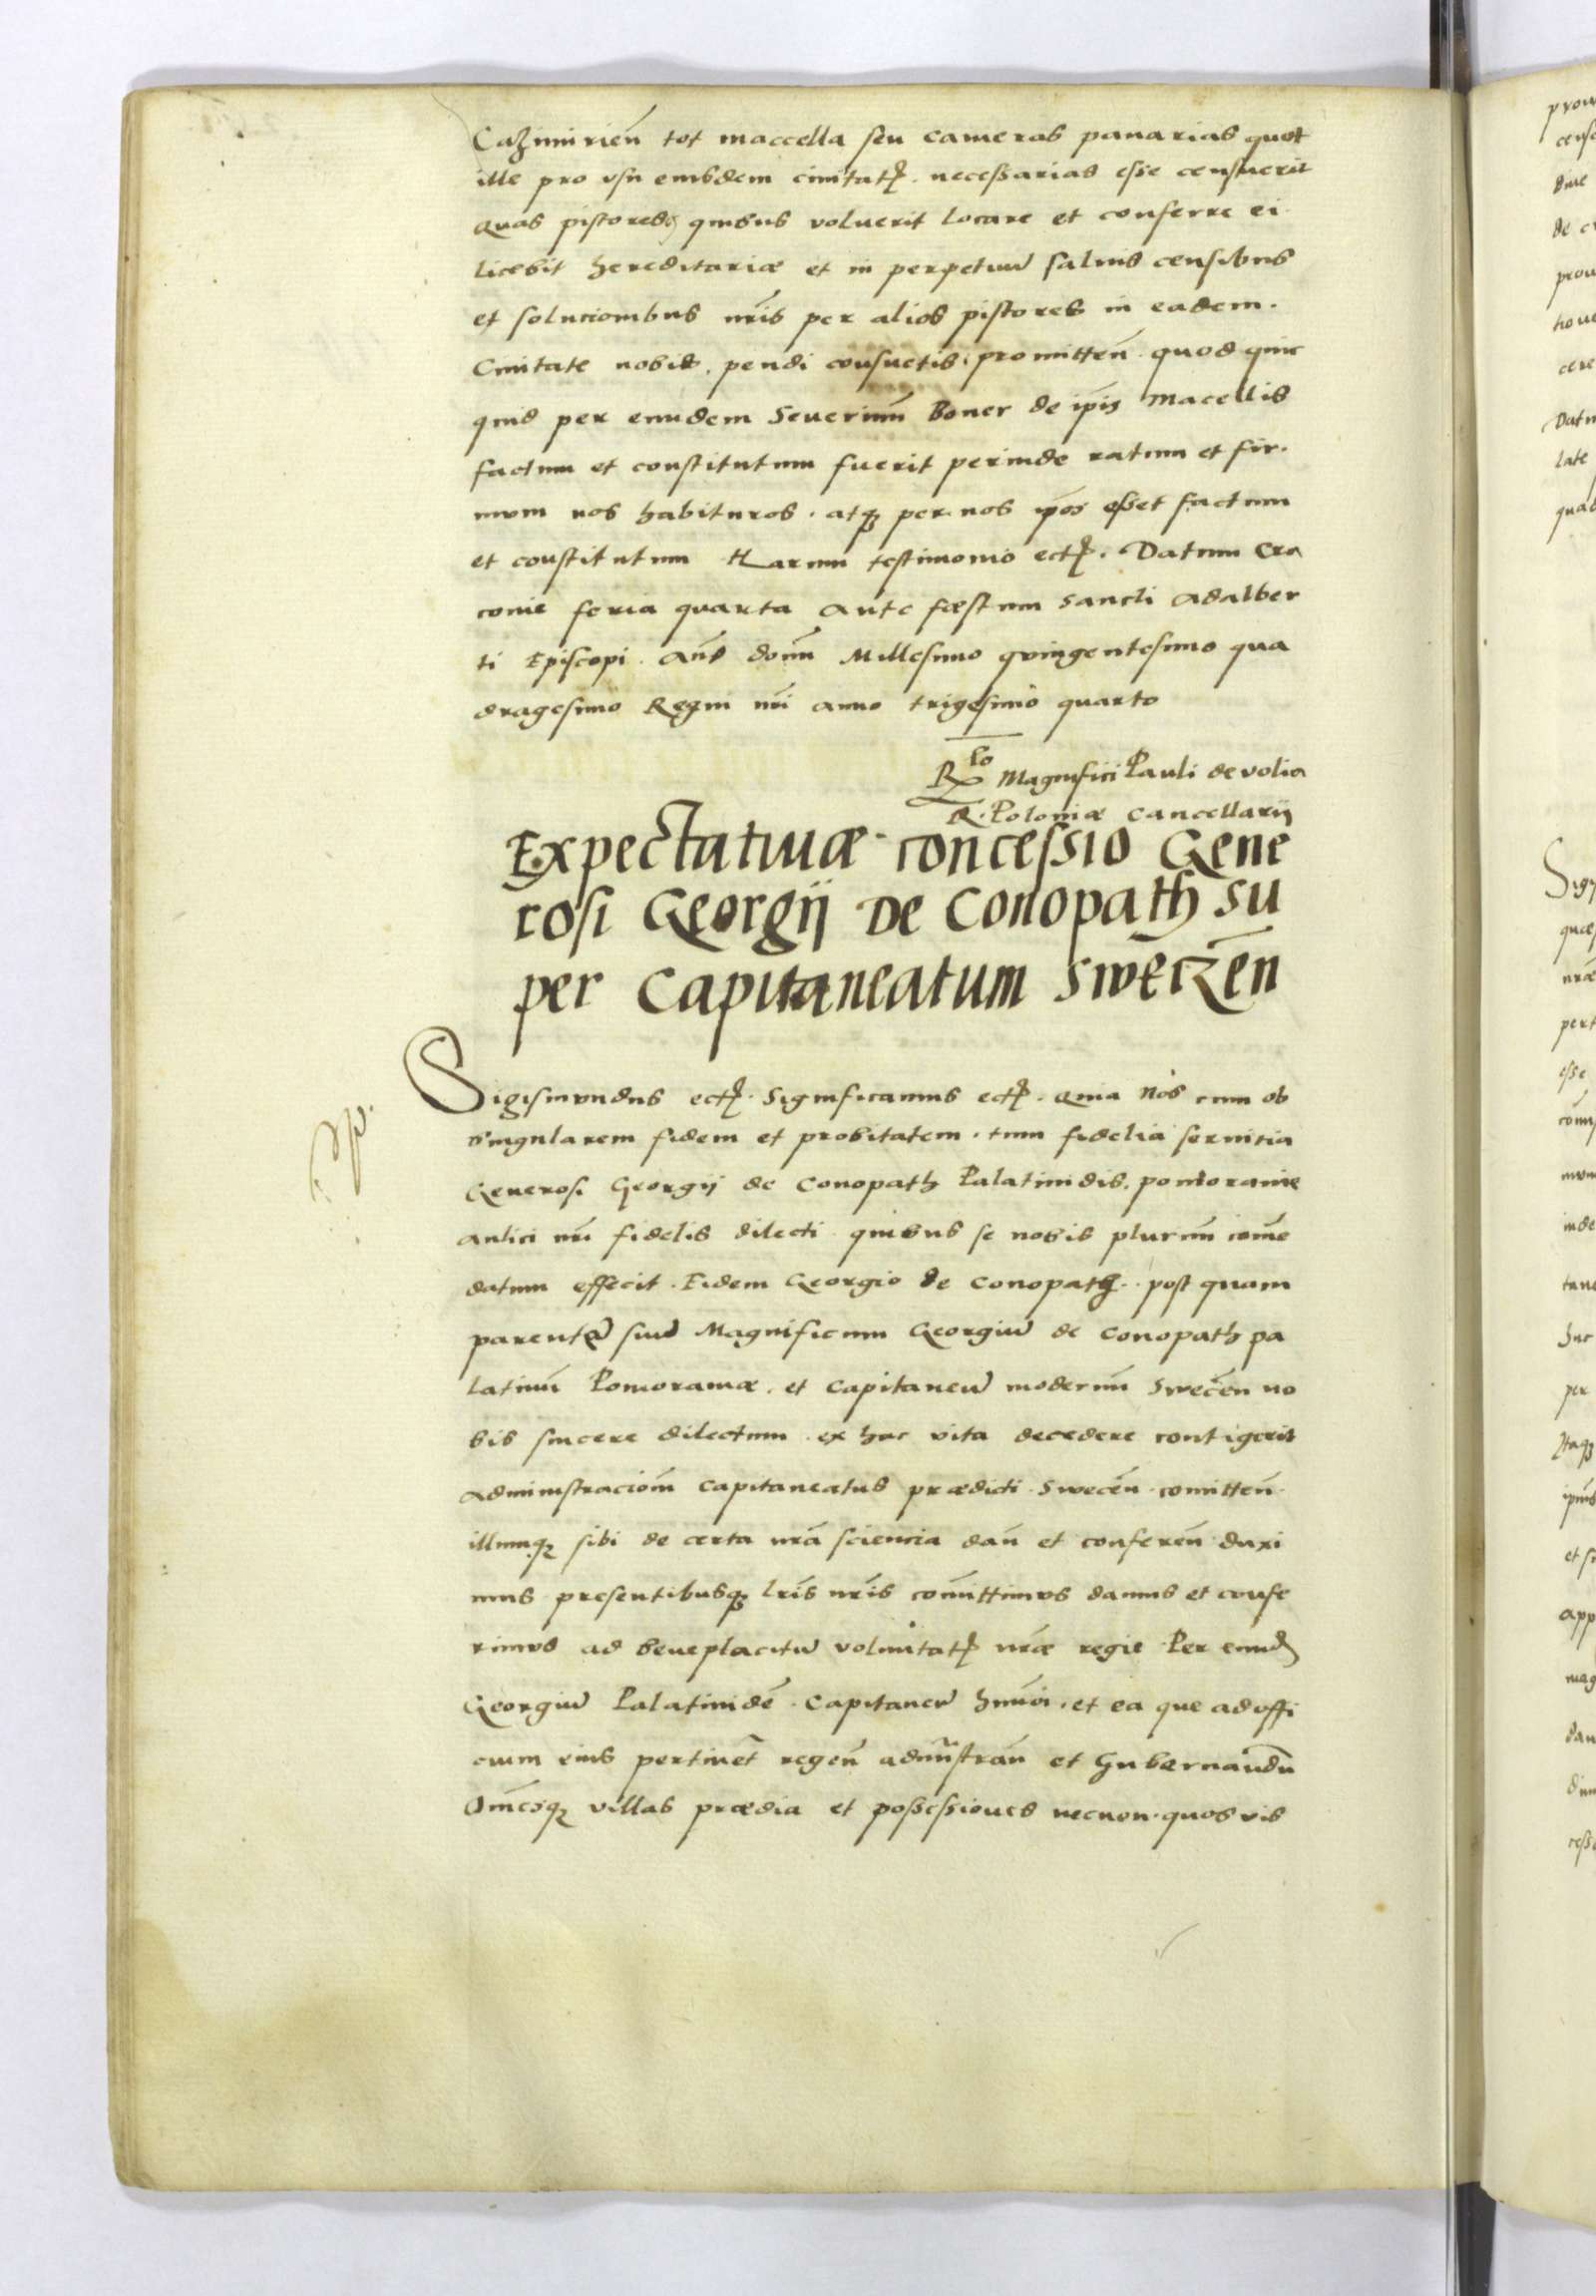 Cazimirien̄ tot maccella seu cameras panarias quot
ille pro vsu eiusdem ciuitatꝭ necessarias esse censuerit
Quas pistoresꝙ quibus voluerit locare et conferre ei
licebit hereditariæ et in perpetuum̄ saluis censibus
et solucionibus nr̄is per alios pistores in eadem.
Ciuitate nobis. pendi consuetis. promitten̄. quod quic
quid per eundem Seuerinū Boner de ip̄is Macellis
factum et constitutum fuerit perinde ratum et fir.
mvm nos habituros. atqꝫ per nos ip̄os esset factum
et constitutum Harum testimonio ectꝭ. Datum Cra
couie feria quarta Ante fæstum Sancti Adalber
ti Episcopi. Ann̄o domī Millesimo qvingentesimo qua
dragesimo Regni nr̄i anno trigesimo quarto
R̄lo Magnifici Pauli de volia
R. Poloniæ Cancellarij
Expectatiuæ concessio Gene
rosi Georgij De Conopath su
per Capitaneatum Sweczen̄
Sigismvndus ectꝭ. Significamus ectꝭ. Quia Nos cum ob
singularem fidem et probitatem. tum fidelia seruitia
Generosi Georgij de Conopath Palatinidis. pomoranie
aulici nr̄i fidelis dilecti quibus se nobis plurimū com̄e
datum effecit. Eidem Georgio de Conopath. post quam
parentem̄ suum̄ Magnificum Georgium̄ de Conopath pa
latinū Pomoraniæ. et Capitaneum̄ modernū Swecen̄ no
bis sincere dilectum. ex hac vita decedere contigerit
Administraciōm Capitaneatus prædicti. Swecen̄. comitten̄.
illumqꝫ sibi de certa nr̄a sciencia dan̄ et conferen̄ duxi
mus. presentibusqꝫ lr̄is nr̄is com̄ittimvs damus et confe
rimvs ad beneplacitum̄ voluntatꝭ nr̄æ regie Per eund̄
Georgium̄ Palatinidē. Capitaneum̄ hm̄oi. et ea que ad offi
cium eius pertinēt regen̄ adm̄istran̄ et Gubernandū
Om̄esqꝫ villas prædia et possessiones necnon. quosvis